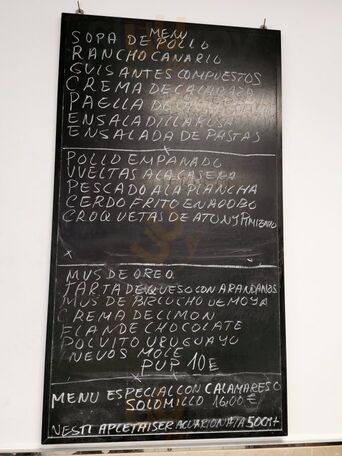 MENU
SOPA DE POLLO
RANCHO CANARIO
GUISANTES COMPUESTOS
CREMA DE CALABAZA
PAELLA DE
ENSALADILLA RUSA
ENSALADA DE PASTAS
POLLO EMPANADO
VUELTAS A LA CASERA
PESCADO A LA PLANCHA
CERDO FRITO EN ADOBO
CROQUETAS DE ATUN Y PIMIENTO
MUS DE OREO
TARTA DE QUESO CON ARANDANOS
MUS DE BIZCUCHO DE MOYA
CREMA DE LIMON
FLAN DE CHOCOLATE
POLVITO URUGUAYO
NEVOS MOLE
PVP 10E
MENU ESPECIAL CON CALAMARES O
SOLOMILLO 16,00€
NESTI APLETAISER ACUARIO 50CM+